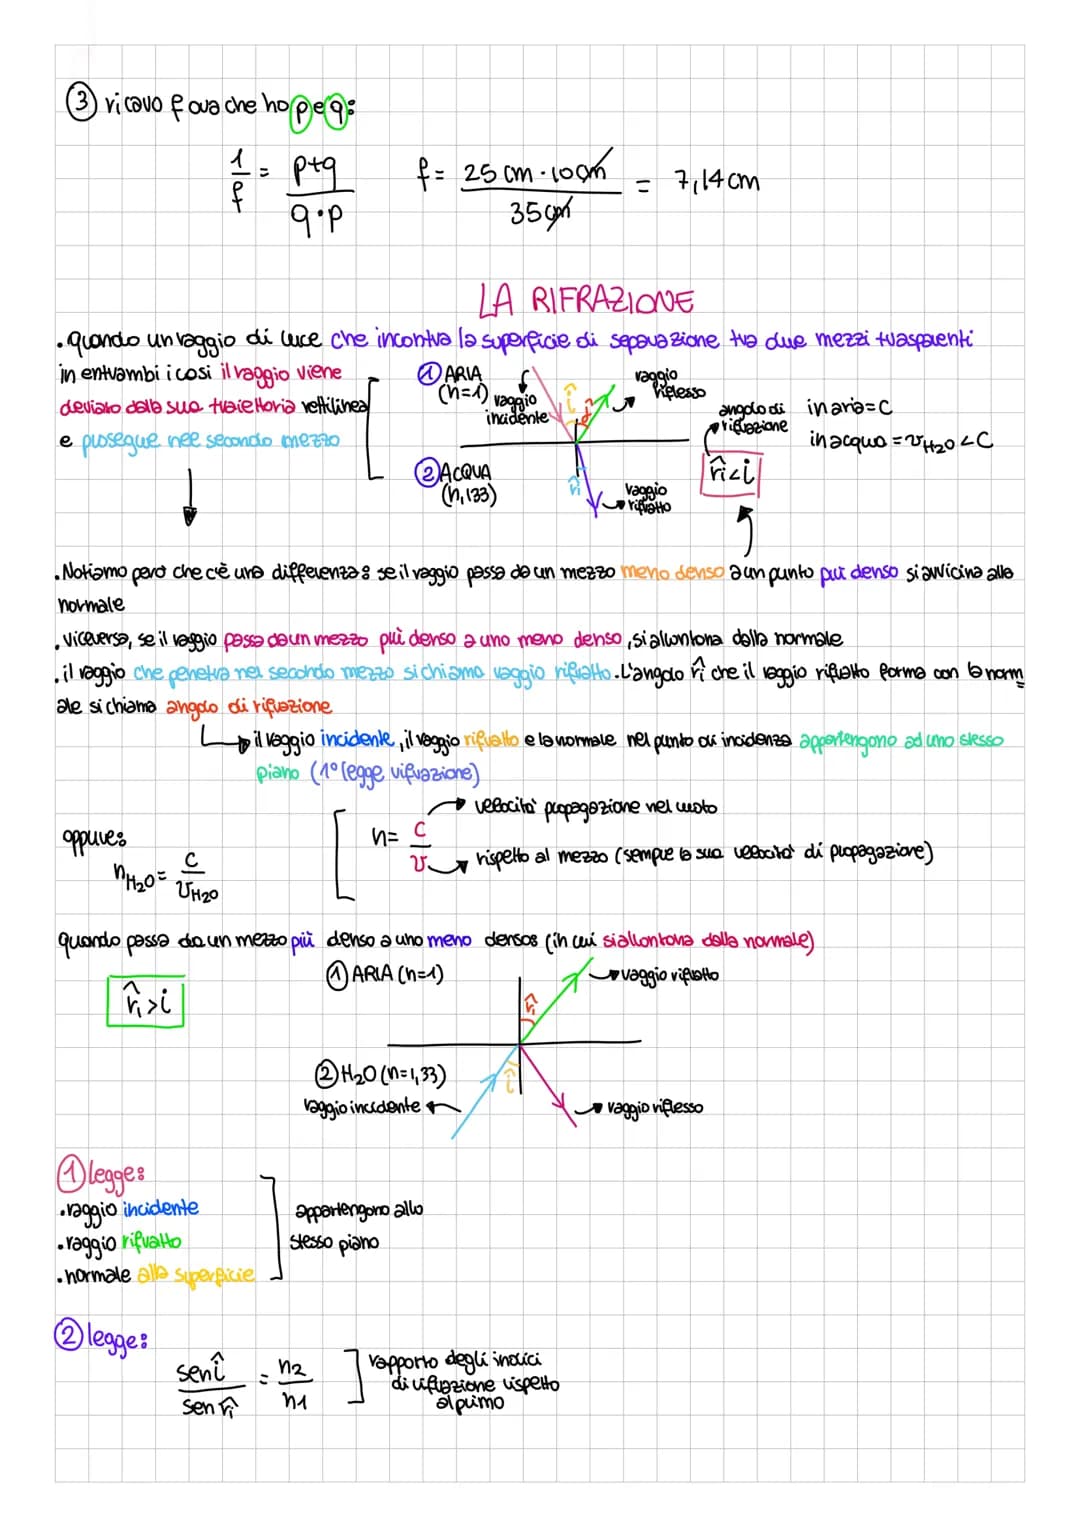 ③ ricavo f ora che ho p e q:
1/f = p+q / q·p    f = 25 cm · 10 cm / 35 cm = 7,14 cm
LA RIFRAZIONE
. quando un raggio di luce che incontra la superficie di separazione tra due mezzi trasparenti
in entrambi i casi il raggio viene
deviato dalla sua traiettoria rettilinea
e prosegue nel secondo mezzo
① ARIA
(n=1)
raggio
incidente
î
r̂
raggio
riflesso
② ACQUA
(n, 1,33)
r̂i
raggio
rifratto
angolo di
rifrazione
r̂i < i
in aria = C
in acqua = vH2O < C
. Notiamo però che c'è una differenza: se il raggio passa da un mezzo meno denso a un punto più denso si avvicina alla
normale
. viceversa, se il raggio passa da un mezzo più denso a uno meno denso, si allontana dalla normale
. il raggio che penetra nel secondo mezzo si chiama raggio rifratto. L'angolo r̂ che il raggio rifratto forma con la norm
ale si chiama angolo di rifrazione
il raggio incidente, il raggio rifratto e la normale nel punto di incidenza appartengono ad uno stesso
piano (1° legge rifrazione)
oppure:
nH2O = C / vH2O
n = C / v
velocità propagazione nel vuoto
rispetto al mezzo (sempre la sua velocità di propagazione)
quando passa da un mezzo più denso a uno meno densos (in cui si allontana dalla normale)
r̂i > i
① ARIA (n=1)
r̂i
raggio rifratto
② H2O (n=1,33)
î
raggio incidente
raggio riflesso
① legge:
. raggio incidente
. raggio rifratto
. normale alla superficie
appartengono allo
stesso piano
② legge:
sen î / sen r̂i = n2 / n1
rapporto degli indici
di rifrazione rispetto
al primo